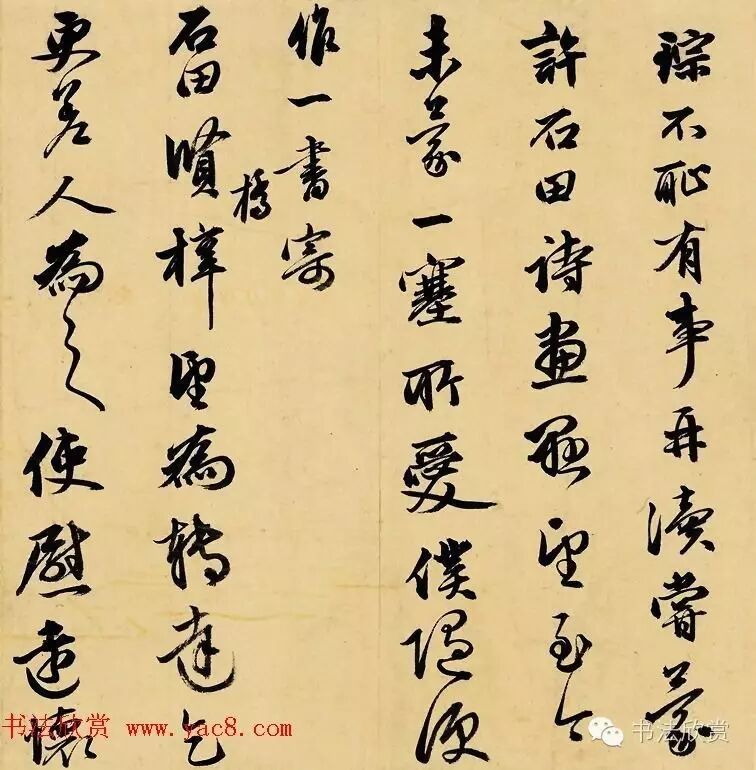 琮不耻有事再瀆嘗蒙
許石田詩畫懸望至今
未蒙一塞所愛僕偶便
作一書寄
石田賢梓望為轉達乞
橋
更差人為之使慰遠懷
书法欣赏 www.yac8.com
书法欣赏